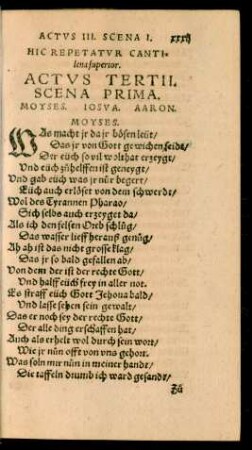 ACTVS III. SCENA I.
HIC REPETATVR CANTI-
lena superior.
ACTVS TERTII.
SCENA PRIMA.
MOYSES. IOSVA. AARON.
MOYSES.
WAs macht jr da jr bösen leüt/
Das jr von Gott gewichen seidt/
Der eüch so vil wolthat erzeygt/
Vnd eüch zůhelffen ist geneygt/
Vnd gab eüch was jr nůr begert/
Eüch auch erlöset von dem schwerdt/
Wol des Tyrannen Pharao/
Sich selds auch erzeyget da/
Als ich den felsen Oreb schlůg/
Das wasser lieff herauß genůg/
Ah ah ist das nicht grosse klag/
Das jr so bald gefallen ab/
Von dem der ist der rechte Gott/
Vnd halff eüch frey in aller not.
Es straff eüch Gott Jehoua bald/
Vnd lasse sehen sein gewalt/
Das er noch sey der rechte Gott/
Der alle ding erschaffen hat/
Auch als erhelt wol durch sein wort/
Wie jr nůn offt von vns gehort.
Was soln mir nůn in meiner handt/
Die taffeln drumb ich ward gesandt/
Zů